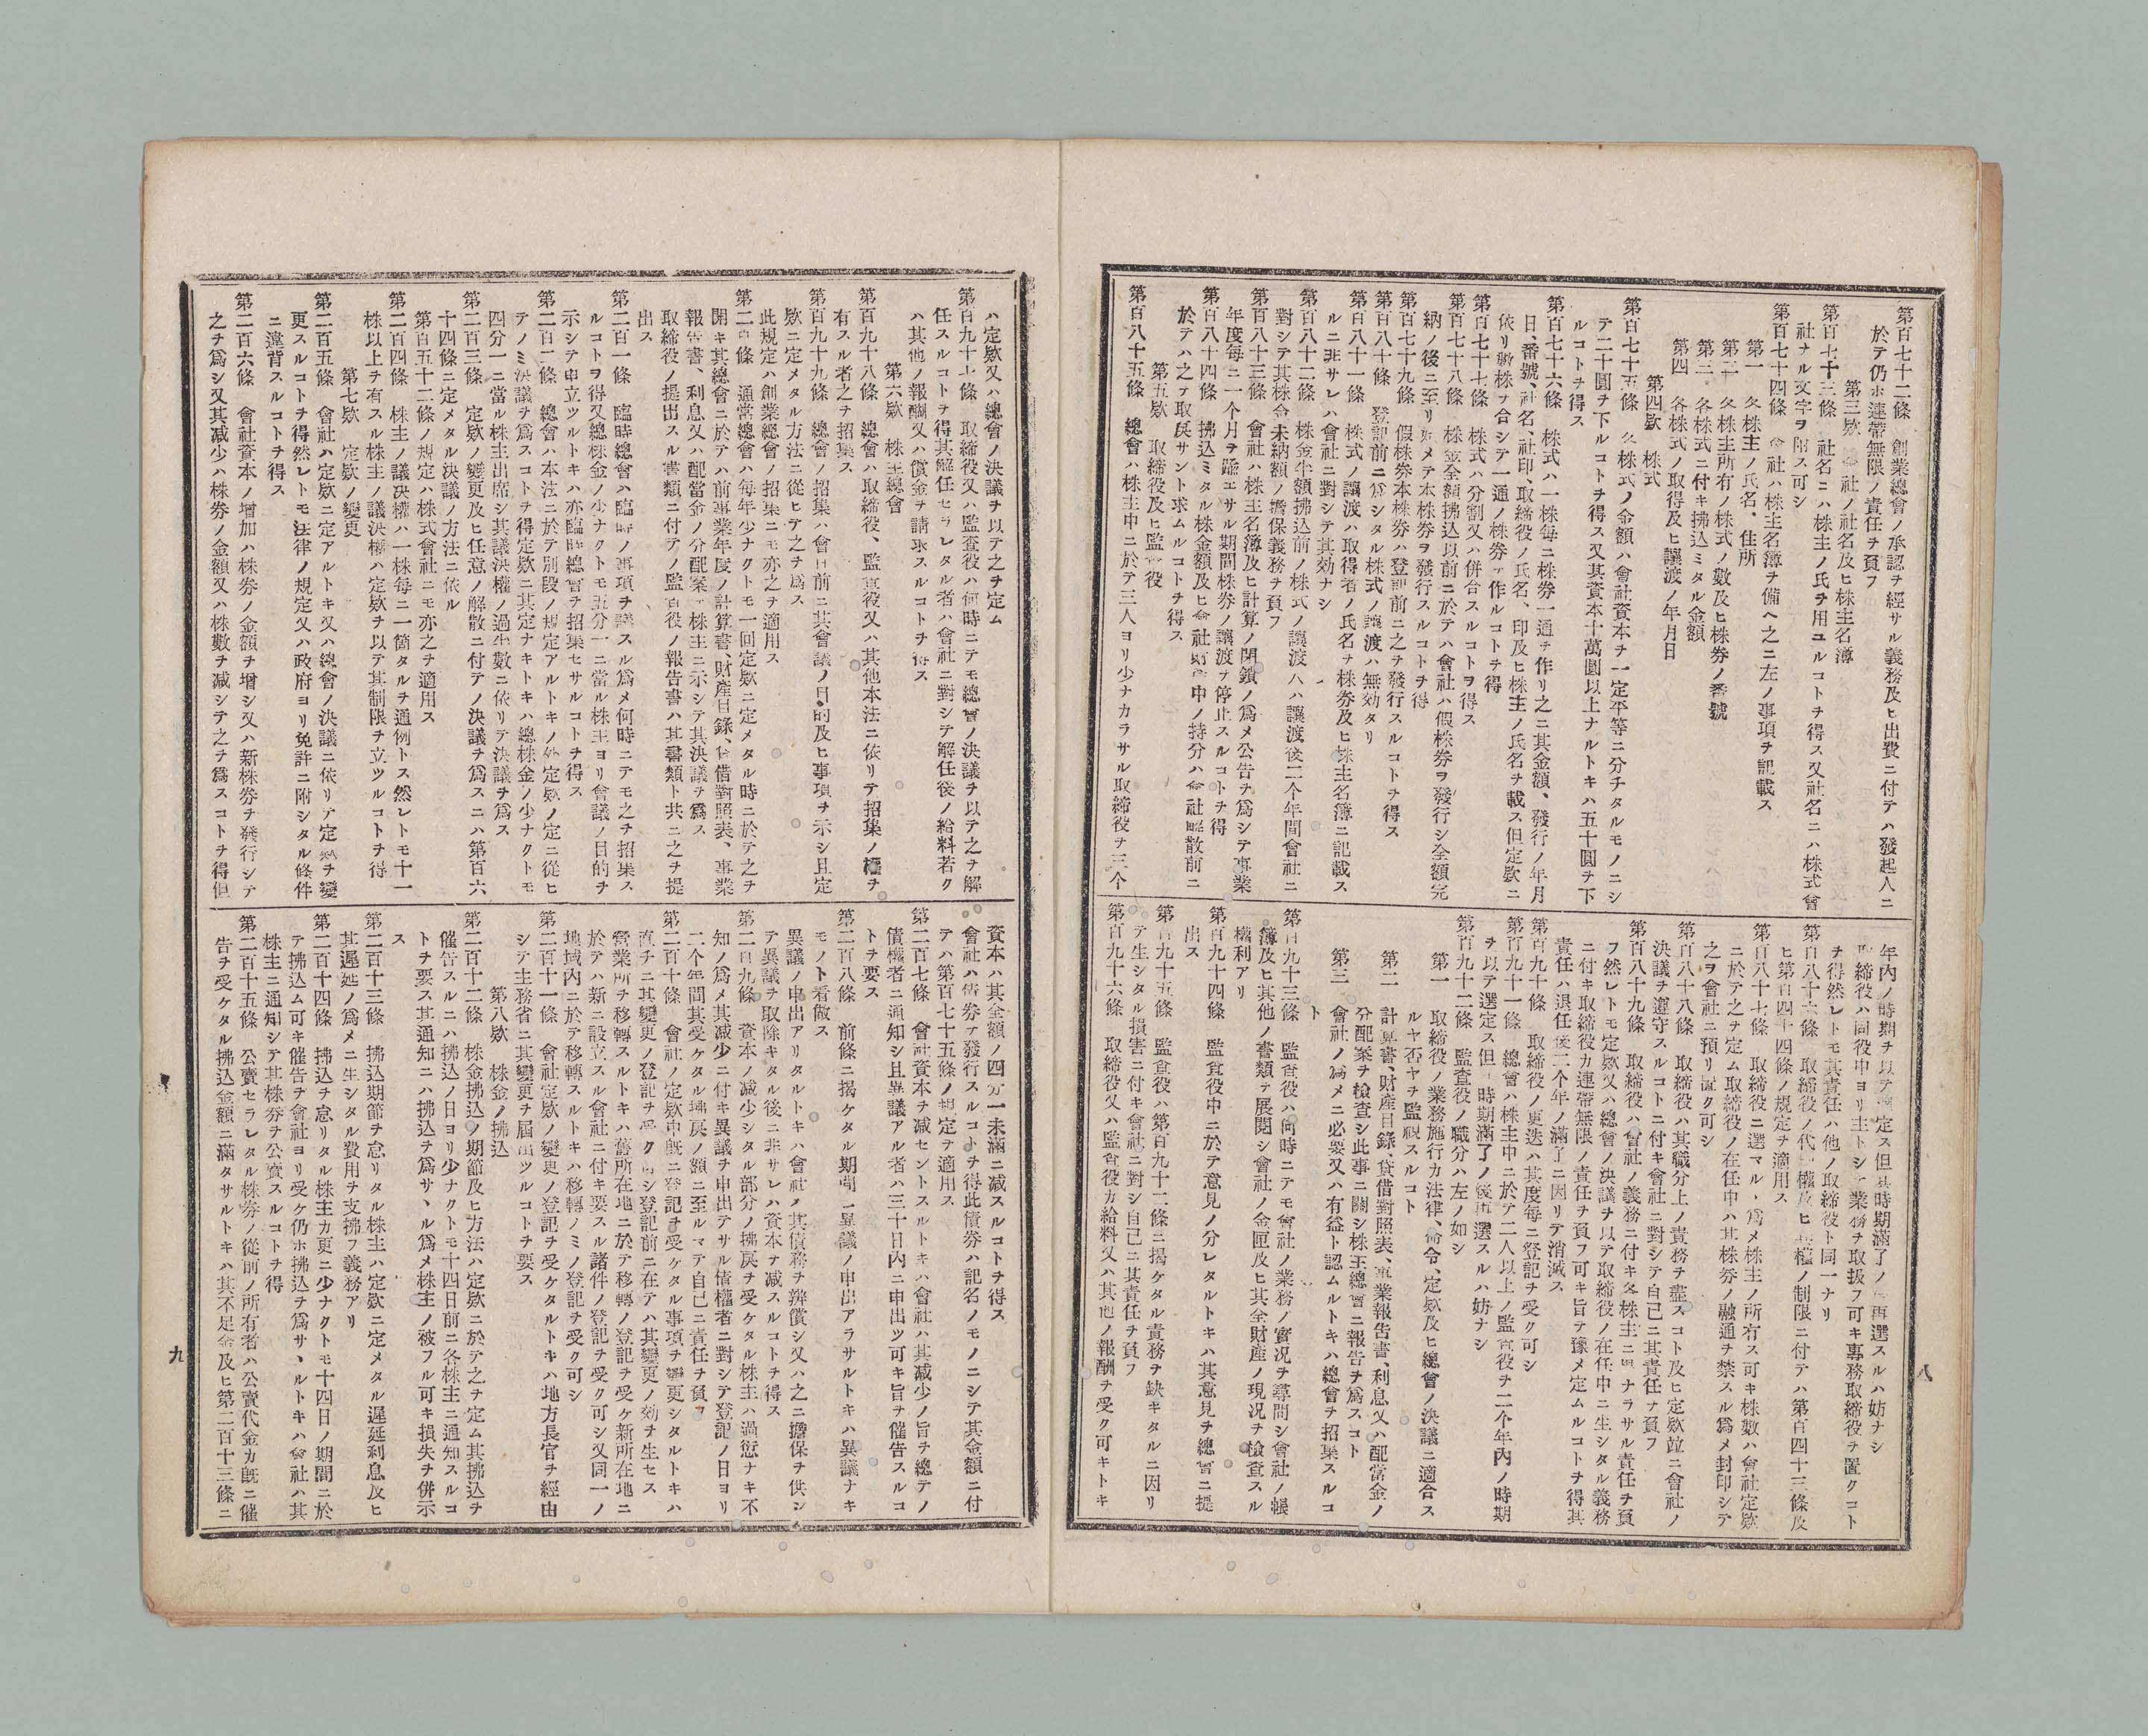 第百七十二條　創業總會ノ承認ヲ經サル義務及ヒ出費ニ付テハ發起人ニ
於テ仍ホ連帶無限ノ責任ヲ負フ
第三欵　會社ノ社名及ヒ株主名簿
第百七十三條　社名ニハ株主ノ氏ヲ用ユルコトヲ得ス又社名ニハ株式會
社ナル文字ヲ附ス可シ
第百七十四條　會社ハ株主名簿ヲ備ヘ之ニ左ノ事項ヲ記載ス
第一　各株主ノ氏名、住所
第二　各株主所有ノ株式ノ數及ヒ株券ノ番號
第三　各株式ニ付キ拂込ミタル金額
第四　各株式ノ取得及ヒ讓渡ノ年月日
第四欵　株式
第百七十五條　各株式ノ金額ハ會社資本ヲ一定平等ニ分チタルモノニシ
テ二十圓ヲ下ルコトヲ得ス又其資本十萬圓以上ナルトキハ五十圓ヲ下
ルコトヲ得ス
第百七十六條　株式ハ一株每ニ株券一通ヲ作リ之ニ其金額、發行ノ年月
日、番號、社名、社印、取締役ノ氏名、印及ヒ株主ノ氏名ヲ載ス但定欵ニ
依リ數株ヲ合シテ一通ノ株券ヲ作ルコトヲ得
第百七十七條　株式ハ分割又ハ併合スルコトヲ得ス
第百七十八條　株金全額拂込以前ニ於テハ會社ハ假株券ヲ發行シ全額完
納ノ後ニ至リ始メテ本株券ヲ發行スルコトヲ得
第百七十九條　假株券本株券ハ登記前ニ之ヲ發行スルコトヲ得ス
第百八十條　登記前ニ爲シタル株式ノ讓渡ハ無効タリ
第百八十一條　株式ノ讓渡ハ取得者ノ氏名ヲ株券及ヒ株主名簿ニ記載ス
ルニ非サレハ會社ニ對シテ其効ナシ
第百八十二條　株金半額拂込前ノ株式ノ讓渡人ハ讓渡後二个年間會社ニ
對シテ其株金未納額ノ擔保義務ヲ負フ
第百八十三條　會社ハ株主名簿及ヒ計算ノ閉鎖ノ爲メ公告ヲ爲シテ事業
年度每ニ一个月ヲ踰エサル期間株券ノ讓渡ヲ停止スルコトヲ得
第百八十四條　拂込ミタル株金額及ヒ會社財產中ノ持分ハ會社解散前ニ
於テハ之ヲ取戾サント求ムルコトヲ得ス
第五欵　取締役及ヒ監查役
第百八十五條　總會ハ株主中ニ於テ三人ヨリ少ナカラサル取締役ヲ三个
年內ノ時期ヲ以テ選定ス但其時期滿了ノ後再選スルハ妨ナシ
取締役ハ同役中ヨリ主トシテ業務ヲ取扱フ可キ專務取締役ヲ置クコト
ヲ得然レトモ其責任ハ他ノ取締役ト同一ナリ
第百八十六條　取締役ノ代理權及ヒ其權ノ制限ニ付テハ第百四十三條及
ヒ第百四十四條ノ規定ヲ適用ス
第百八十七條　取締役ニ選マルヽ爲メ株主ノ所有ス可キ株數ハ會社定欵
ニ於テ之ヲ定ム取締役ノ在任中ハ其株券ノ融通ヲ禁スル爲メ封印シテ
之ヲ會社ニ預リ置ク可シ
第百八十八條　取締役ハ其職分上ノ責務ヲ盡スコト及ヒ定欵竝ニ會社ノ
決議ヲ遵守スルコトニ付キ會社ニ對シテ自己ニ其責任ヲ負フ
第百八十九條　取締役ハ會社ノ義務ニ付キ各株主ニ異ナラサル責任ヲ負
フ然レトモ定欵又ハ總會ノ決議ヲ以テ取締役ノ在任中ニ生シタル義務
ニ付キ取締役カ連帶無限ノ責任ヲ負フ可キ旨ヲ豫メ定ムルコトヲ得其
責任ハ退任後二个年ノ滿了ニ因リテ消滅ス
第百九十條　取締役ノ更迭ハ其度每ニ登記ヲ受ク可シ
第百九十一條　總會ハ株主中ニ於テ二人以上ノ監查役ヲ二个年內ノ時期
ヲ以テ選定ス但時期滿了ノ後再選スルハ妨ナシ
第百九十二條　監查役ノ職分ハ左ノ如シ
第一　取締役ノ業務施行カ法律、命令、定欵及ヒ總會ノ決議ニ適合ス
ルヤ否ヤヲ監視スルコト
第二　計算書、財產目錄、貸借對照表、事業報吿書、利息又ハ配當金ノ
分配案ヲ檢查シ此事ニ關シ株主總會ニ報吿ヲ爲スコト
第三　會社ノ爲メニ必要又ハ有益ト認ムルトキハ總會ヲ招集スルコ
ト
第百九十三條　監查役ハ何時ニテモ會社ノ業務ノ實况ヲ尋問シ會社ノ帳
簿及ヒ其他ノ書類ヲ展閱シ會社ノ金匣及ヒ其全財產ノ現况ヲ檢查スル
權利アリ
第百九十四條　監查役中ニ於テ意見ノ分レタルトキハ其意見ヲ總會ニ提
出ス
第百九十五條　監查役ハ第百九十二條ニ揭ケタル責務ヲ缺キタルニ因リ
テ生シタル損害ニ付キ會社ニ對シ自己ニ其責任ヲ負フ
第百九十六條　取締役又ハ監查役カ給料又ハ其他ノ報酬ヲ受ク可キトキ
八
ハ定欵又ハ總會ノ決議ヲ以テ之ヲ定ム
第百九十七條　取締役又ハ監查役ハ何時ニテモ總會ノ決議ヲ以テ之ヲ解
任スルコトヲ得其解任セラレタル者ハ會社ニ對シテ解任後ノ給料若ク
ハ其他ノ報酬又ハ償金ヲ請求スルコトヲ得ス
第六欵　株主總會
第百九十八條　總會ハ取締役、監查役又ハ其他本法ニ依リテ招集ノ權ヲ
有スル者之ヲ招集ス
第百九十九條　總會ノ招集ハ會日前ニ其會議ノ目的及ヒ事項ヲ示シ且定
欵ニ定メタル方法ニ從ヒテ之ヲ爲ス
此規定ハ創業總會ノ招集ニモ亦之ヲ適用ス
第二百條　通常總會ハ每年少ナクトモ一回定欵ニ定メタル時ニ於テ之ヲ
開キ其總會ニ於テハ前事業年度ノ計算書、財產目錄、貸借對照表、事業
報吿書、利息又ハ配當金ノ分配案ヲ株主ニ示シテ其決議ヲ爲ス
取締役ノ提出スル書類ニ付テノ監查役ノ報吿書ハ其書類ト共ニ之ヲ提
出ス
第二百一條　臨時總會ハ臨時ノ事項ヲ議スル爲メ何時ニテモ之ヲ招集ス
ルコトヲ得又總株金ノ少ナクトモ五分一ニ當ル株主ヨリ會議ノ目的ヲ
示シテ申立ツルトキハ亦臨時總會ヲ招集セサルコトヲ得ス
第二百二條　總會ハ本法ニ於テ別段ノ規定アルトキノ外定欵ノ定ニ從ヒ
テノミ決議ヲ爲スコトヲ得定欵ニ其定ナキトキハ總株金ノ少ナクトモ
四分一ニ當ル株主出席シ其議決權ノ過半數ニ依リテ決議ヲ爲ス
第二百三條　定欵ノ變更及ヒ任意ノ解散ニ付テノ決議ヲ爲スニハ第百六
十四條ニ定メタル決議ノ方法ニ依ル
第百五十二條ノ規定ハ株式會社ニモ亦之ヲ適用ス
第二百四條　株主ノ議決權ハ一株每ニ一箇タルヲ通例トス然レトモ十一
株以上ヲ有スル株主ノ議決權ハ定欵ヲ以テ其制限ヲ立ツルコトヲ得
第七欵　定欵ノ變更
第二百五條　會社ハ定欵ニ定アルトキ又ハ總會ノ決議ニ依リテ定欵ヲ變
更スルコトヲ得然レトモ法律ノ規定又ハ政府ヨリ免許ニ附シタル條件
ニ違背スルコトヲ得ス
第二百六條　會社資本ノ增加ハ株券ノ金額ヲ增シ又ハ新株券ヲ發行シテ
之ヲ爲シ又其減少ハ株券ノ金額又ハ株數ヲ減シテ之ヲ爲スコトヲ得但
資本ハ其全額ノ四分一未滿ニ減スルコトヲ得ス
會社ハ債券ヲ發行スルコトヲ得此債券ハ記名ノモノニシテ其金額ニ付
テハ第百七十五條ノ規定ヲ適用ス
第二百七條　會社資本ヲ減セントスルトキハ會社ハ其減少ノ旨ヲ總テノ
債權者ニ通知シ且異議アル者ハ三十日內ニ申出ツ可キ旨ヲ催告スルコ
トヲ要ス
第二百八條　前條ニ揭ケタル期間ニ異議ノ申出アラサルトキハ異議ナキ
モノト看做ス
異議ノ申出アリタルトキハ會社ハ其債務ヲ辨償シ又ハ之ニ擔保ヲ供シ
テ異議ヲ取除キタル後ニ非サレハ資本ヲ減スルコトヲ得ス
第二百九條　資本ノ減少シタル部分ノ拂戾ヲ受ケタル株主ハ過愆ナキ不
知ノ爲メ其減少ニ付キ異議ヲ申出テサル債權者ニ對シテ登記ノ日ヨリ
二个年間其受ケタル拂戾ノ額ニ至ルマテ自己ニ責任ヲ負フ
第二百十條　會社ノ定欵中旣ニ登記ヲ受ケタル事項ヲ變更シタルトキハ
直チニ其變更ノ登記ヲ受ク可シ登記前ニ在テハ其變更ノ効ヲ生セス
營業所ヲ移轉スルトキハ舊所在地ニ於テ移轉ノ登記ヲ受ケ新所在地ニ
於テハ新ニ設立スル會社ニ付キ要スル諸件ノ登記ヲ受ク可シ又同一ノ
地域內ニ於テ移轉スルトキハ移轉ノミノ登記ヲ受ク可シ
第二百十一條　會社定欵ノ變更ノ登記ヲ受ケタルトキハ地方長官ヲ經由
シテ主務省ニ其變更ヲ屆出ツルコトヲ要ス
第八欵　株金ノ拂込
第二百十二條　株金拂込ノ期節及ヒ方法ハ定欵ニ於テ之ヲ定ム其拂込ヲ
催告スルニハ拂込ノ日ヨリ少ナクトモ十四日前ニ各株主ニ通知スルコ
トヲ要ス其通知ニハ拂込ヲ爲サヽル爲メ株主ノ被フル可キ損失ヲ併示
ス
第二百十三條　拂込期節ヲ怠リタル株主ハ定欵ニ定メタル遲延利息及ヒ
其遲延ノ爲メニ生シタル費用ヲ支拂フ義務アリ
第二百十四條　拂込ヲ怠リタル株主カ更ニ少ナクトモ十四日ノ期間ニ於
テ拂込ム可キ催告ヲ會社ヨリ受ケ仍ホ拂込ヲ爲サヽルトキハ會社ハ其
株主ニ通知シテ其株券ヲ公賣スルコトヲ得
第二百十五條　公賣セラレタル株券ノ從前ノ所有者ハ公賣代金カ旣ニ催
告ヲ受ケタル拂込金額ニ滿タサルトキハ其不足金及ヒ第二百十三條ニ
九